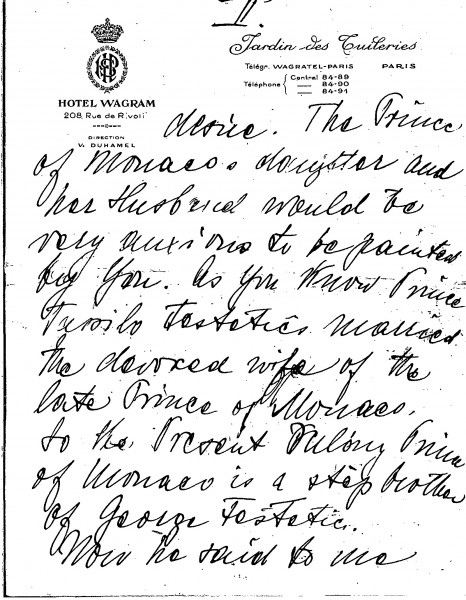 II.
Jardin des Tuileries
Télégr. WAGRATEL-PARIS PARIS
Téléphone { Central 84-89
— 84-90
— 84-91
HOTEL WAGRAM
208, Rue de Rivoli
DIRECTION
V. DUHAMEL
desire. The Prince
of Monaco's daugter and
her Husband would be
very anxious to be painted
by You. As You Know Prince
Tassilo Festetics married
the devorced wife of the
late Prince of Monaco.
So the Present Ruling Prince
of Monaco is a step brother
of George Festetic.
Now he said to me